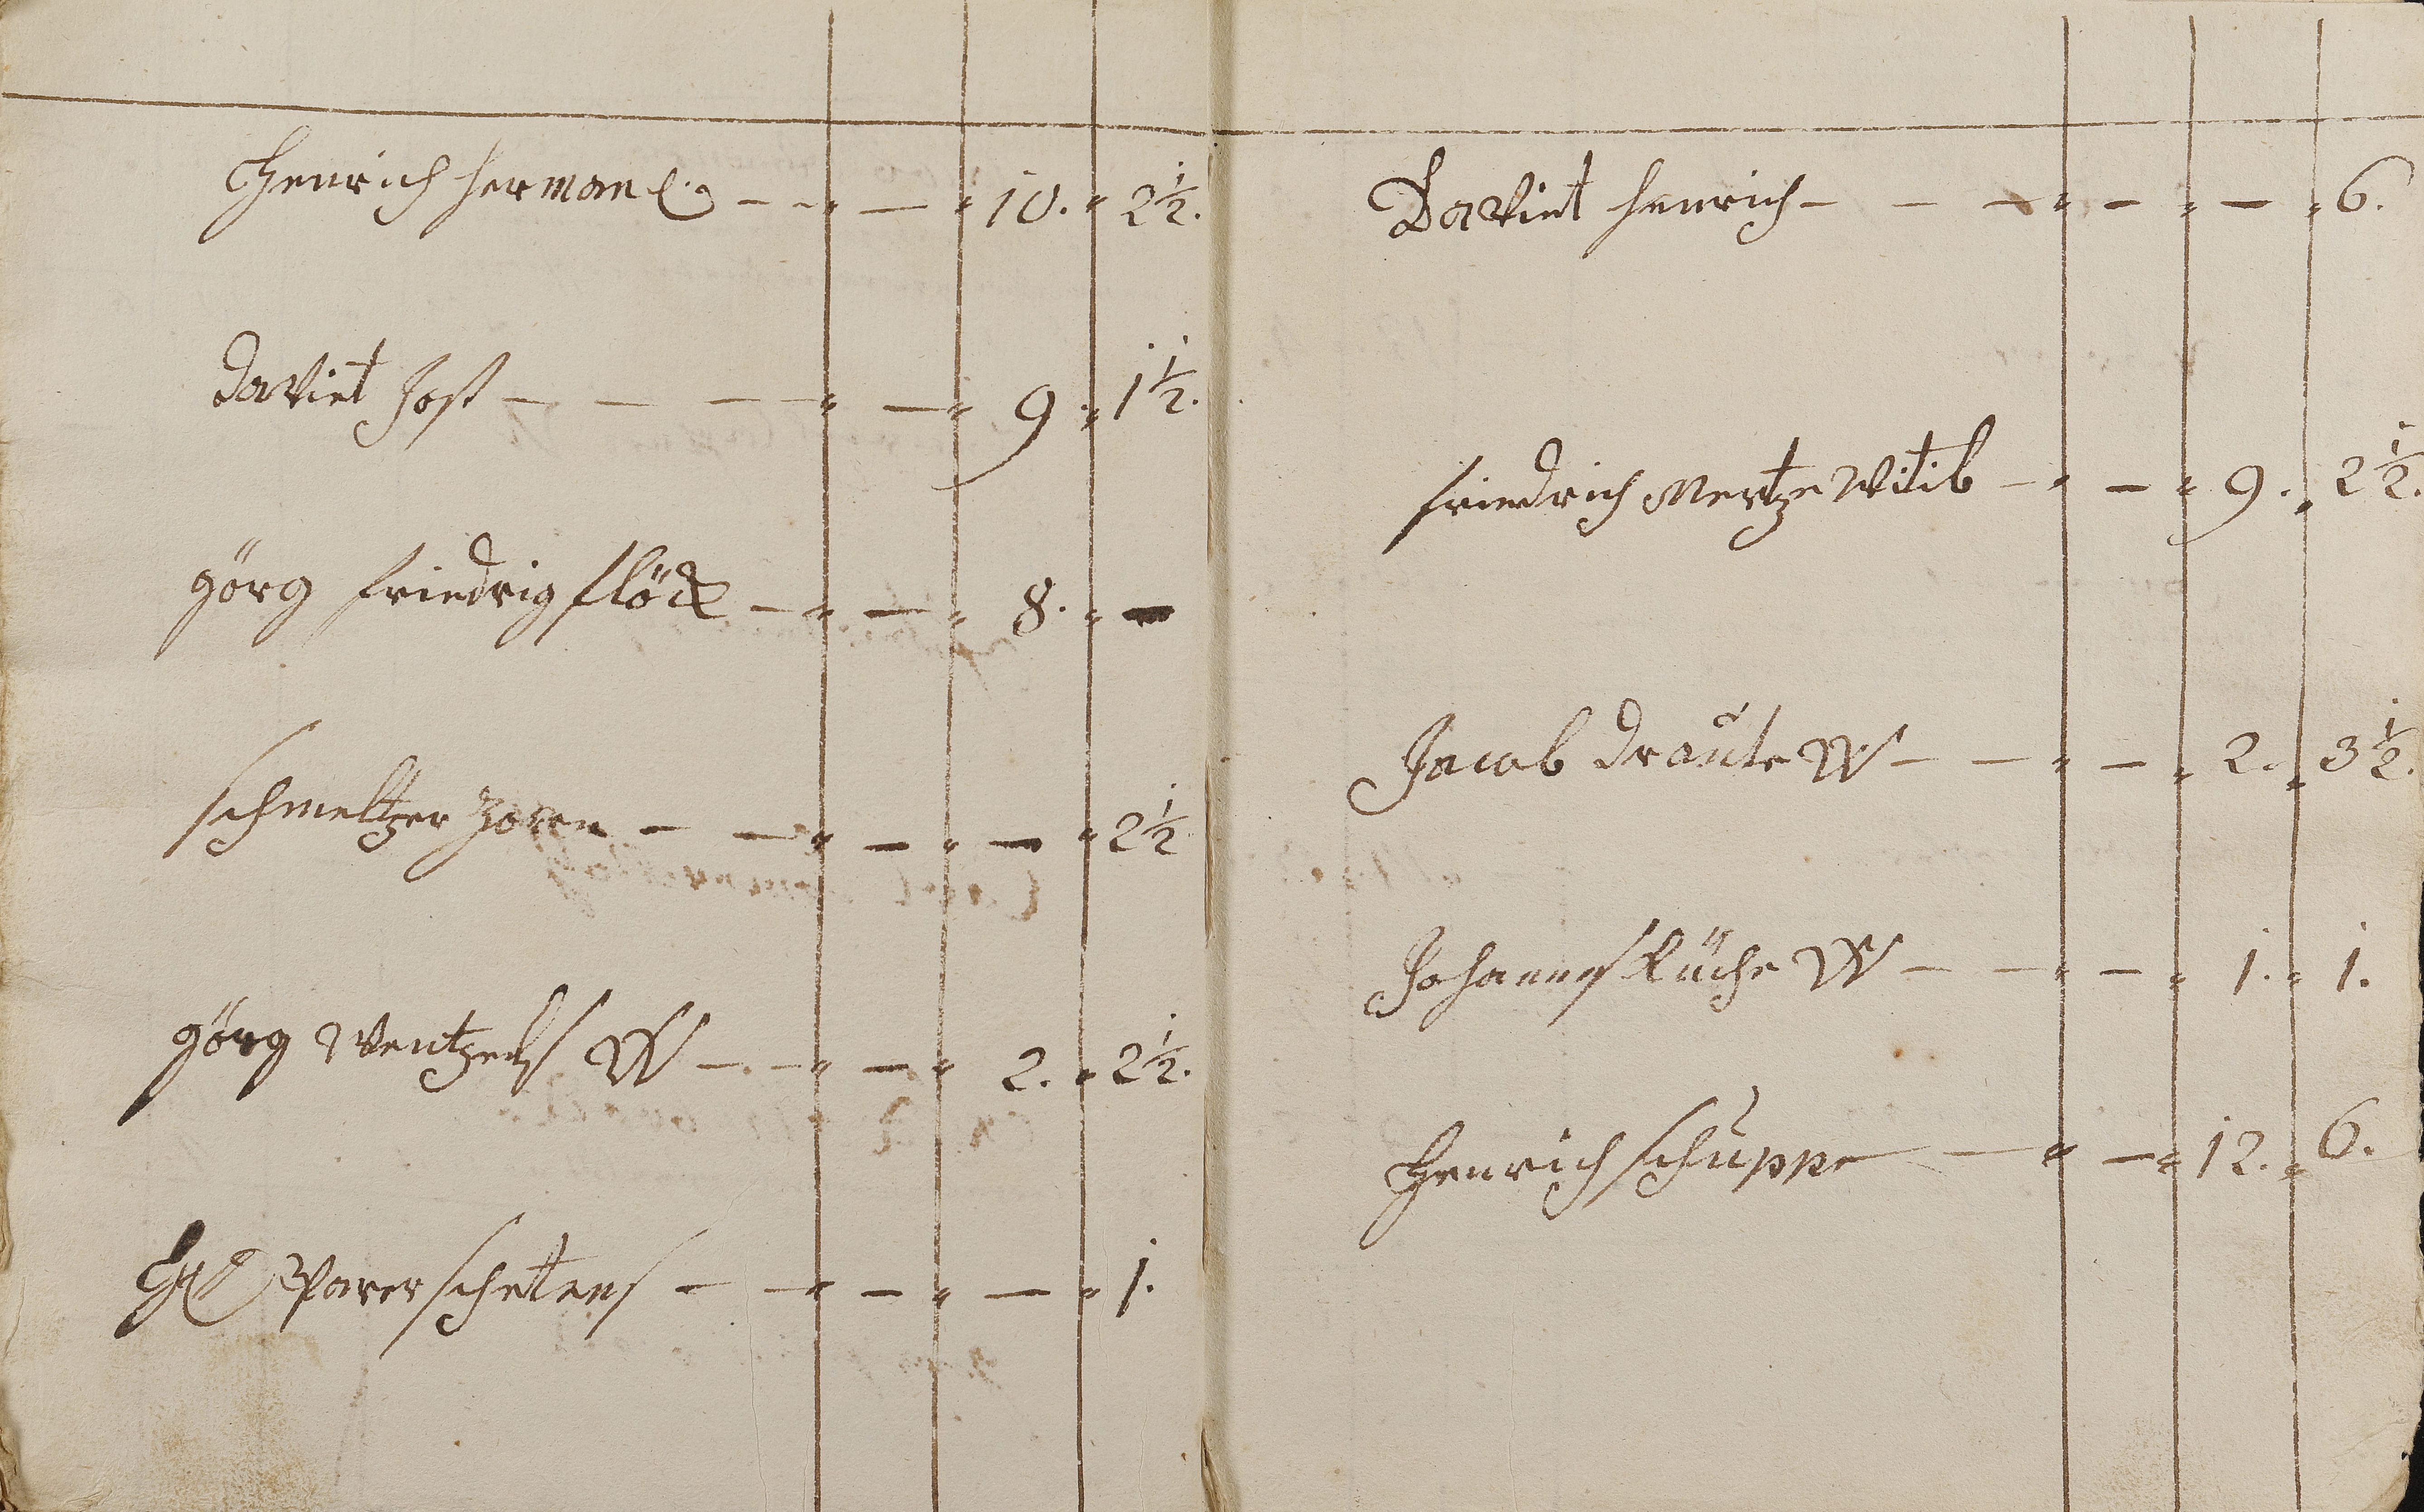 Henrich Herman — — — 10. 2½.
David Jost — — — — 9 1½.
Görg Friedrig Flöck — — 8. —
Schmeltzer Zorn — — — — 2½
Görg Wentzels W — — — 2. 2½.
Schetens — — — — 1.
David Henrich — — — — — 6.
Friedrich Mertze Witib — — 9. 2½.
Jacob Draute W — — — 2. 3½.
Johannes Küche W — — — 1. 1.
Henrich Schuppe — — 12. 6.